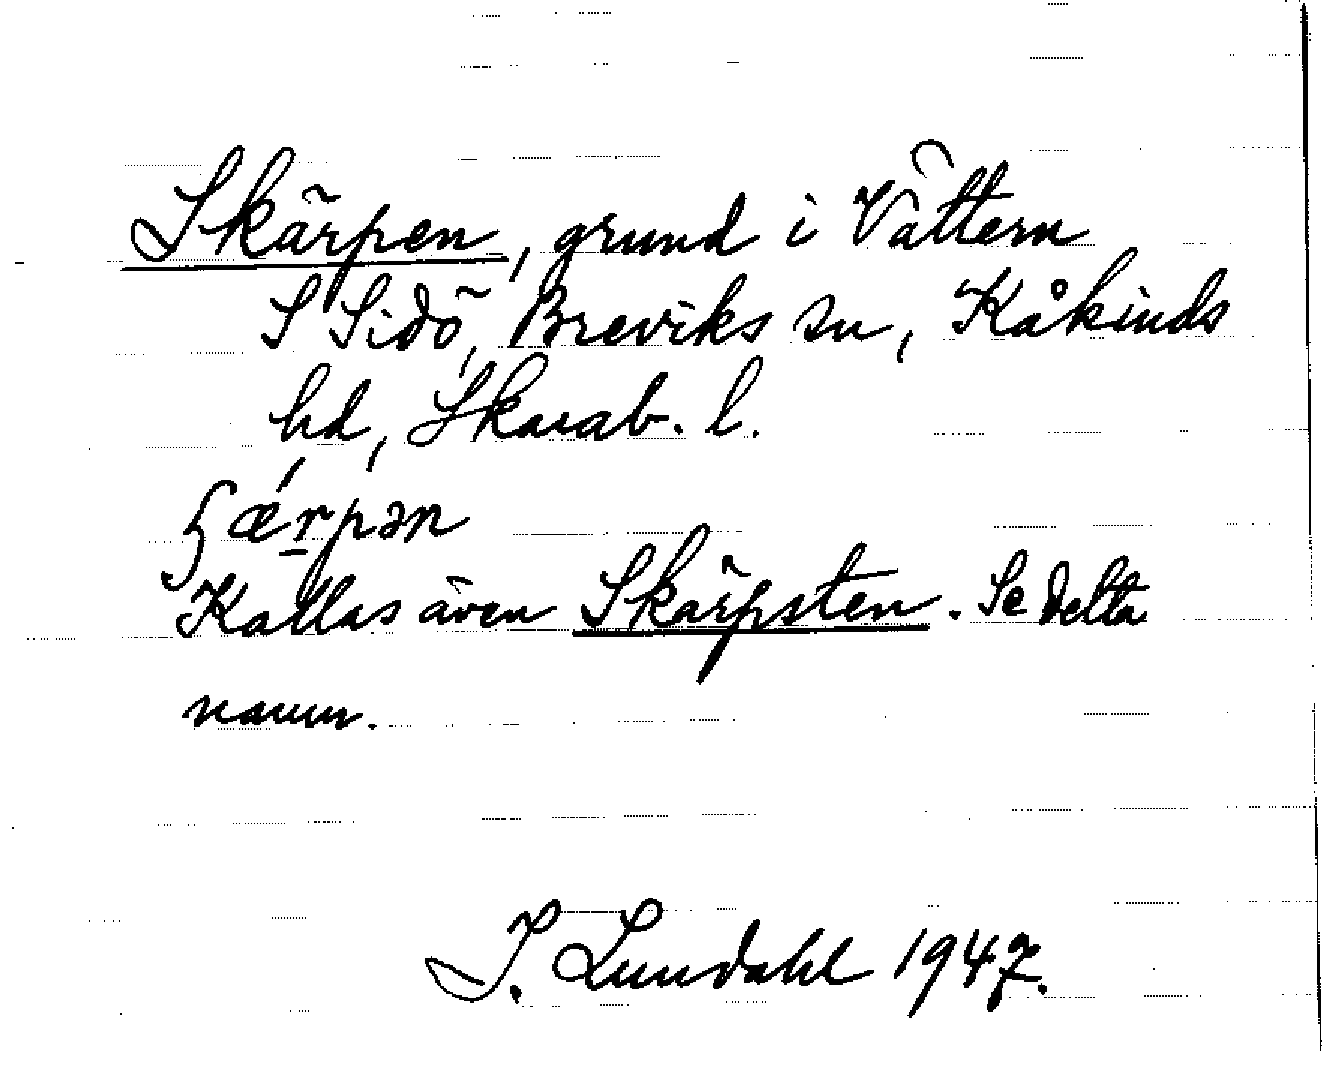 Skärpen, grund i Vättern
S Sidö, Breviks sn, Kåkinds
hd, Skarab. l.
ʂǽrpən
Kallas även Skärpsten. Se detta
namn.
I. Lundahl 1947.